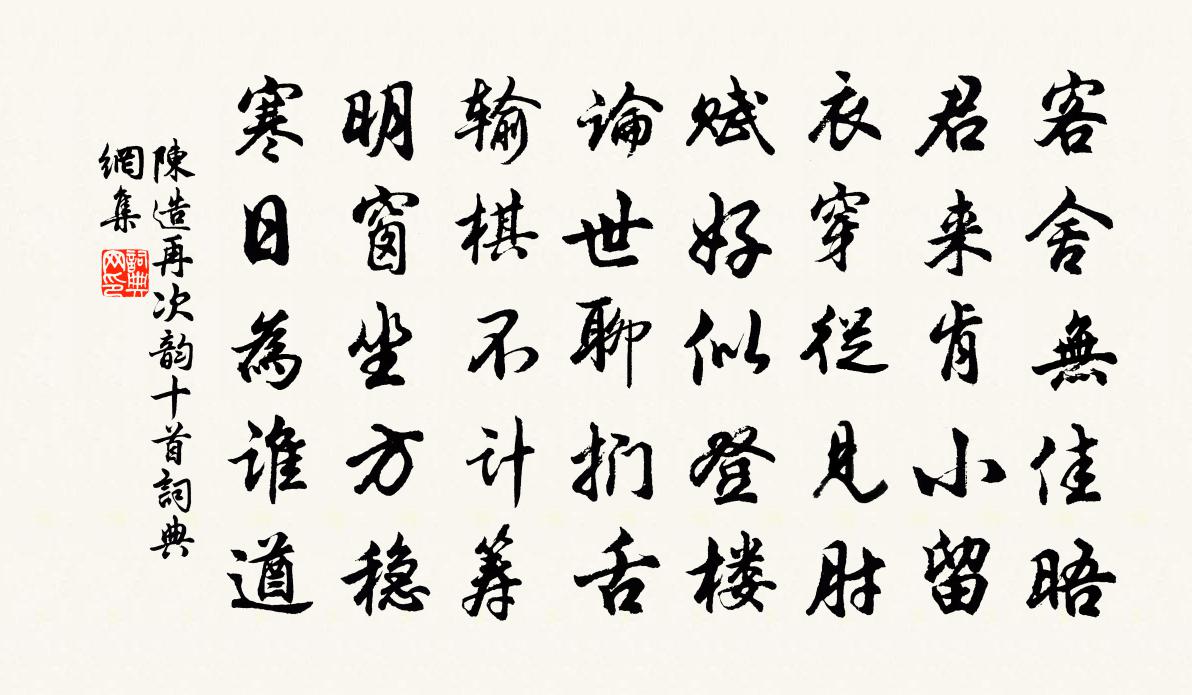 客舍無佳晤
君来肯小留
衣穿從見肘
賦好似登楼
論世聊捫舌
输棋不计筹
明窗坐方稳
寒日為谁遒
陳造再次韵十首詞典
網集
詞典
网印